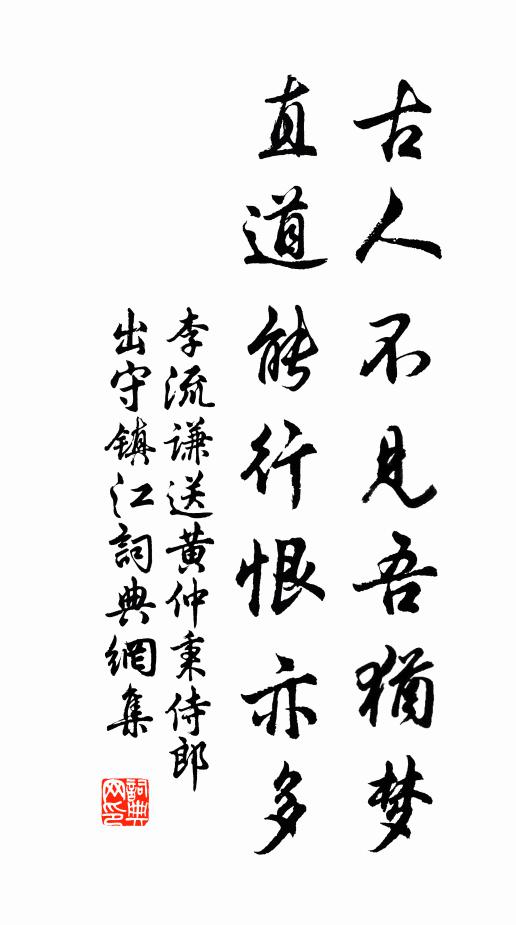 古人不见吾犹梦
直道能行恨亦多
李流谦送黄仲秉侍郎
出守镇江词典网集
词典网印